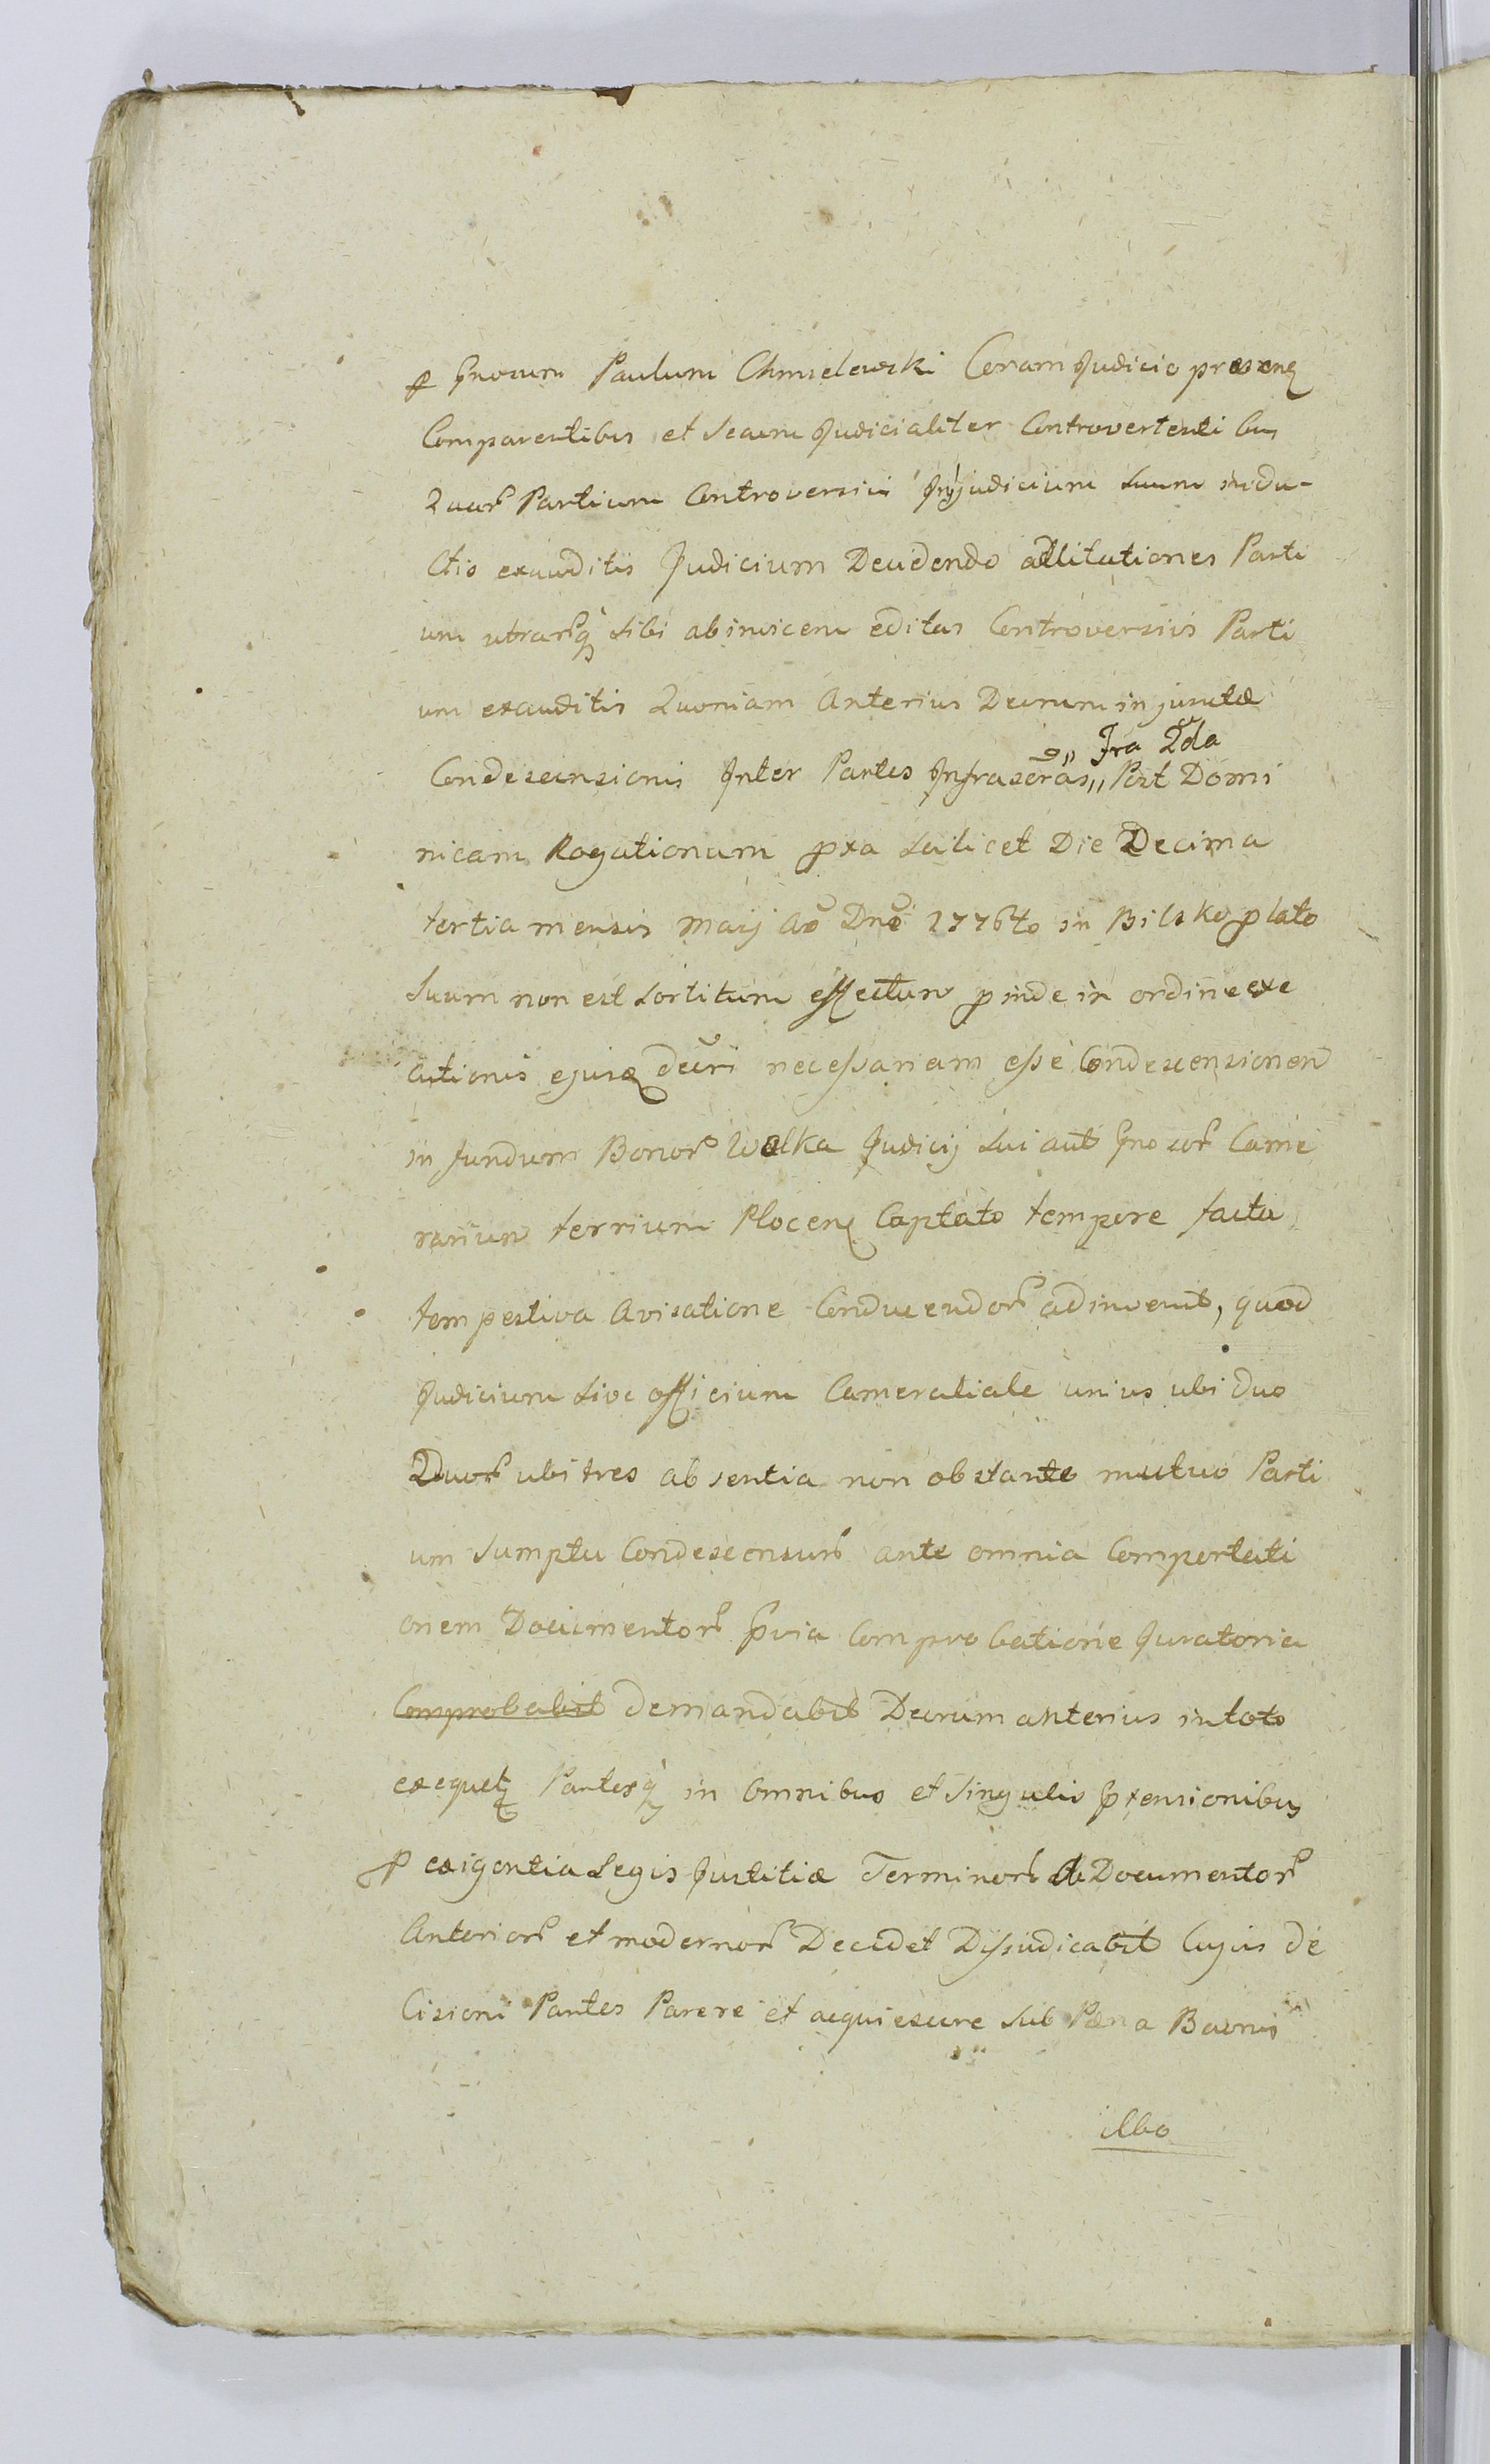 p Gnosum Paulum Chmielewski Coram Judicio presenq
Comparentibus et Secum Judicialiter Controvertenti bus
Quar Partium Controversiis Injudicium suum indu-
ctis exauditis Judicium Decidendo adcitationes Parti
um utrarq sibi abinvicem editas Controversiis Parti
um exauditis Quoniam Anterius Decrum injunctæ
Condescensionis Inter Partes Infrascras „ Fra 2da Post Domi
nicam Rogationum pxa scilicet Die Decima
tertia mensis Maij Ao Dno 1776to in Bilsko plato
suum non est sortitum effectum pinde in ordine exe
cutionis ejusq decri necessariam esse Condescensionem
in fundum Bonor Wolka Judicij sui aut Gnosor Came
rarium terrium Plocenq Captato tempore facta
tempestiva Avisatione Conducendor adinvenit, quod
Judicium sive officium Cameraliale unius ubi duo
Duor ubi tres absentia non obstante mutuo Parti
um sumptu Condescensur ante omnia Comportati
onem Documentor pvia Comprobatione Juratoria
Comprobabit demandabit Decrum anterius in toto
exequetq Partesq in Omnibus et Singulis ptensionibus
p exigentia Legis Justitiæ Terminor & Documentor
Anterior et modernor Decidet Dijudicabit Cujus de
Cisioni Partes Parere et acquiescere sub Pæna Baonis
illbo